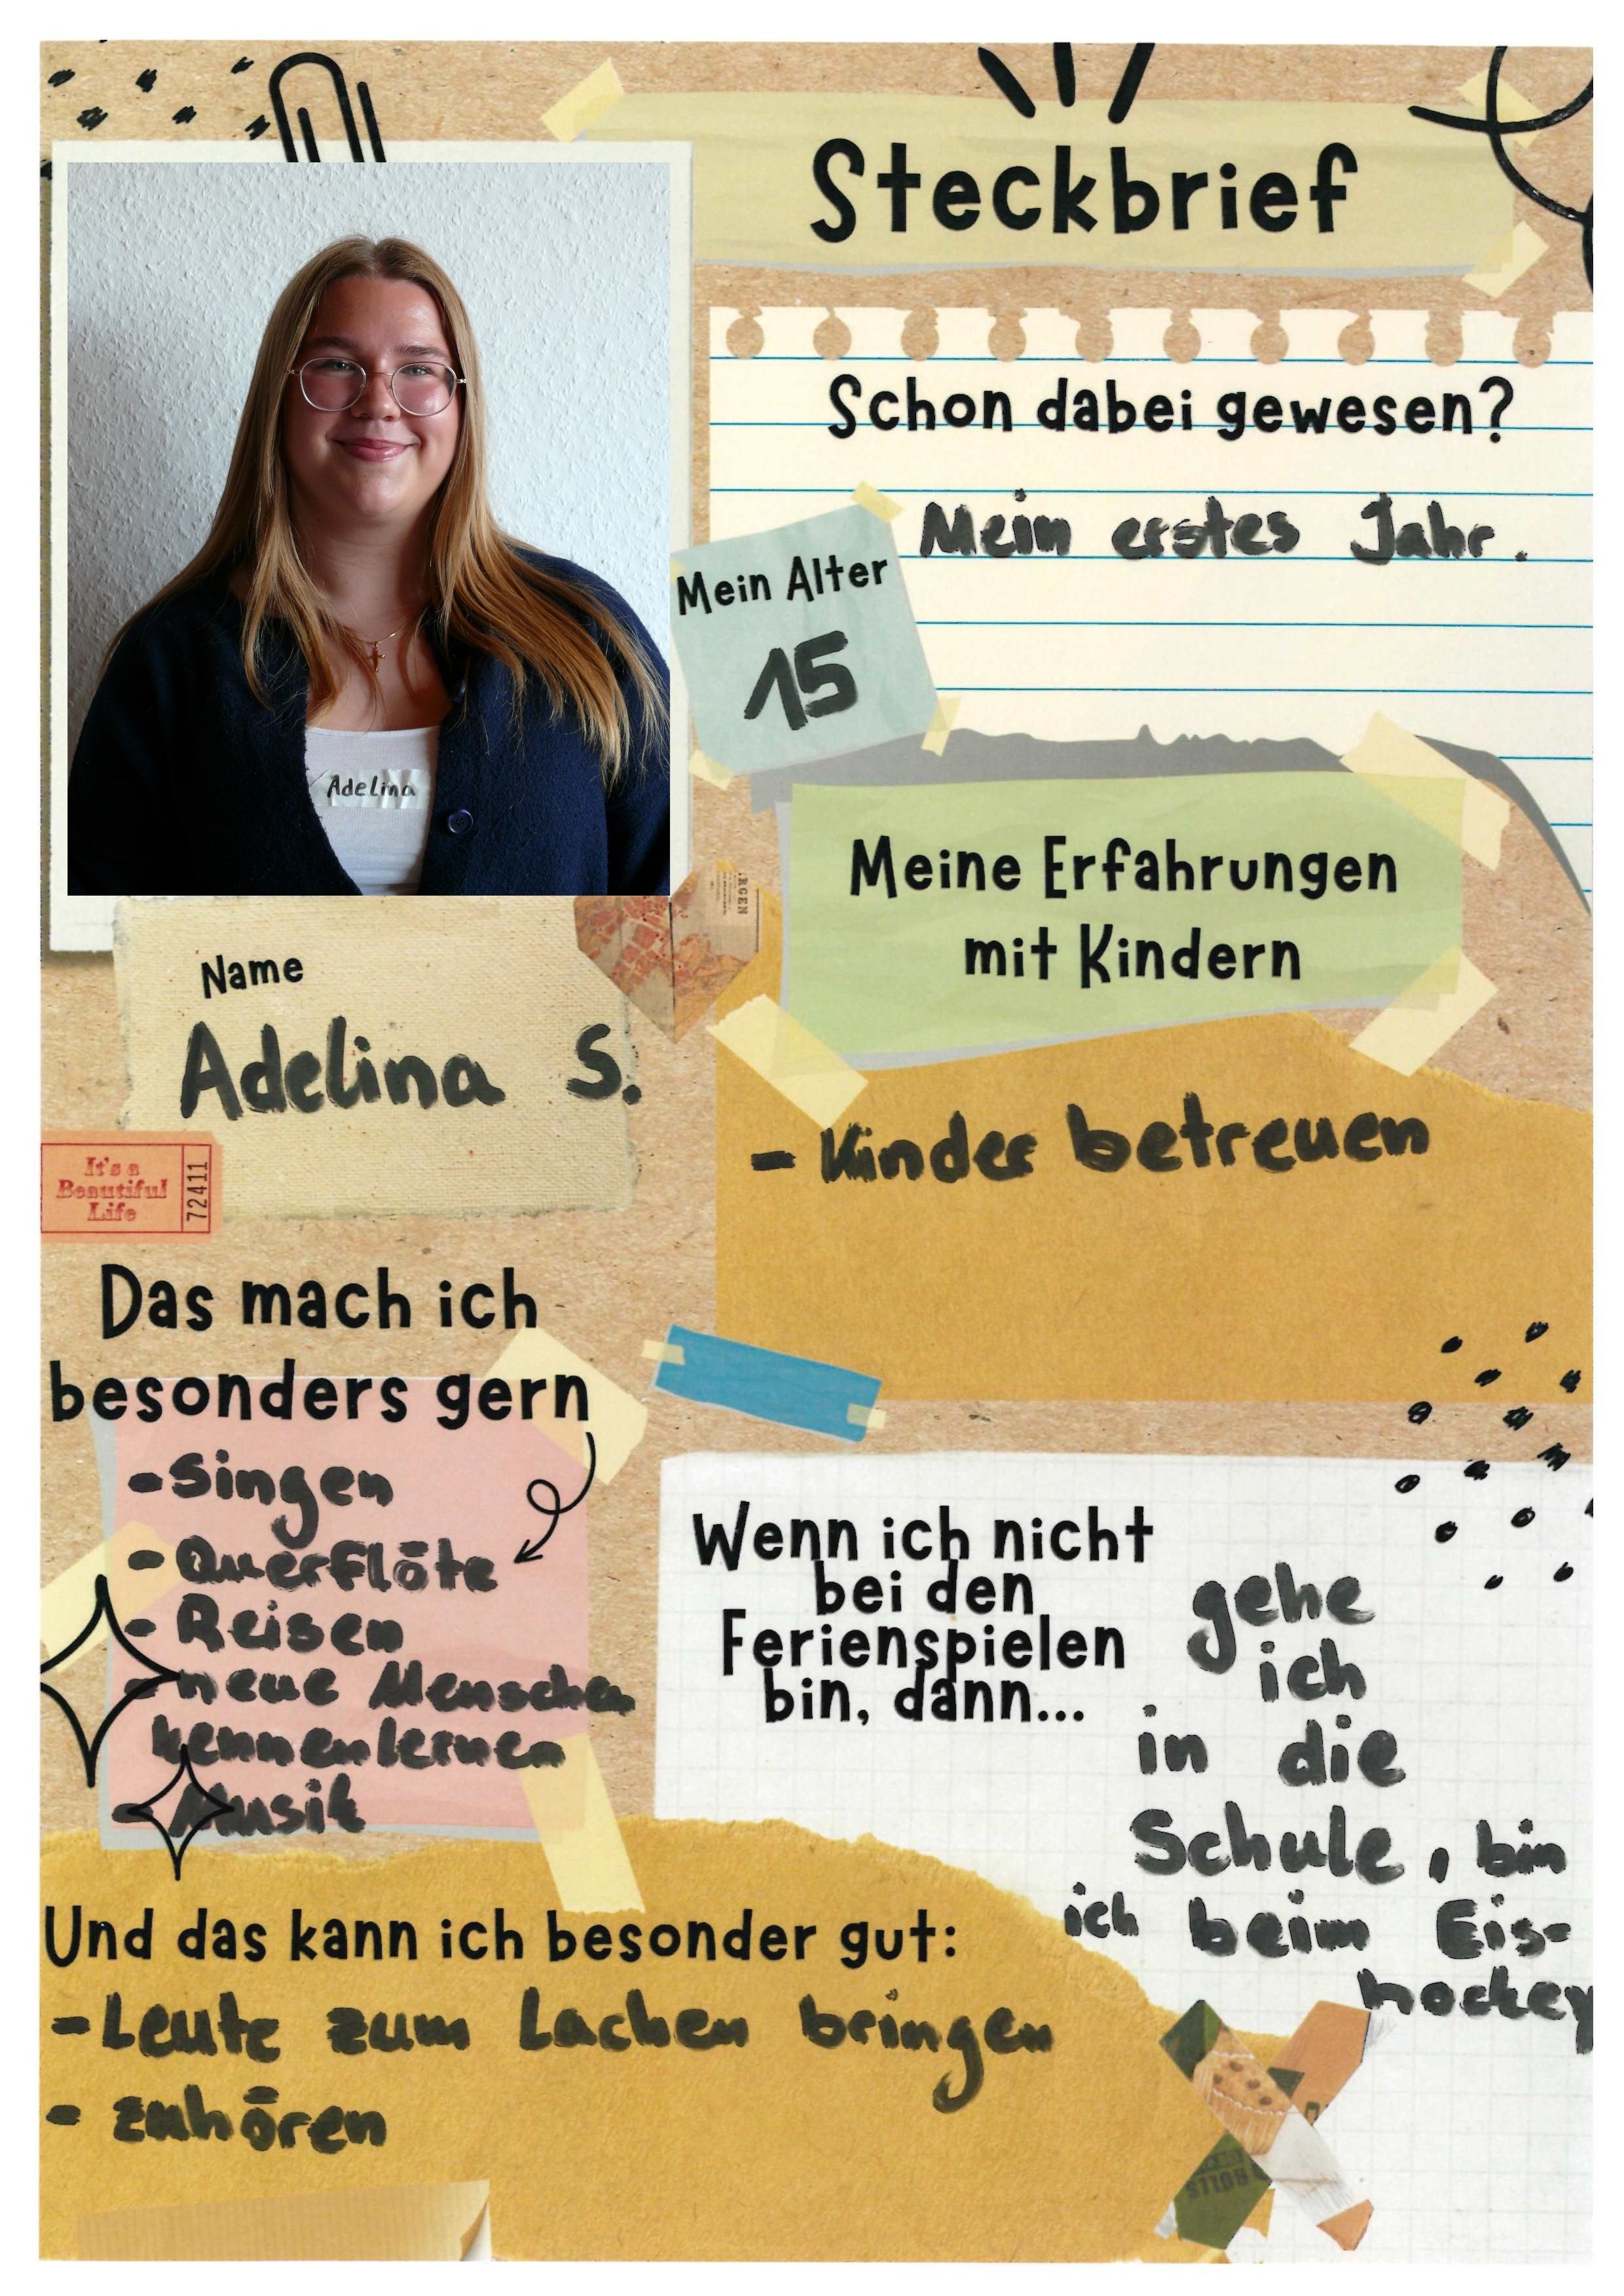 Steckbrief
Schon dabei gewesen?
Mein erstes Jahr.
Mein Alter
15
Adelina
Meine Erfahrungen
mit Kindern
- Kinder betreuen
RGEN
Name
Adelina S.
It's a
Beautiful
Life
72411
Das mach ich
besonders gern
- Singen
- Querflöte
- Reisen
- neue Menschen
kennenlernen
- Musik
Wenn ich nicht
bei den
Ferienspielen
bin, dann...
gehe
ich
in die
Schule, bin
ich beim Eis-
hockey
Und das kann ich besonder gut:
- Leute zum Lachen bringen
- zuhören
ROLLS